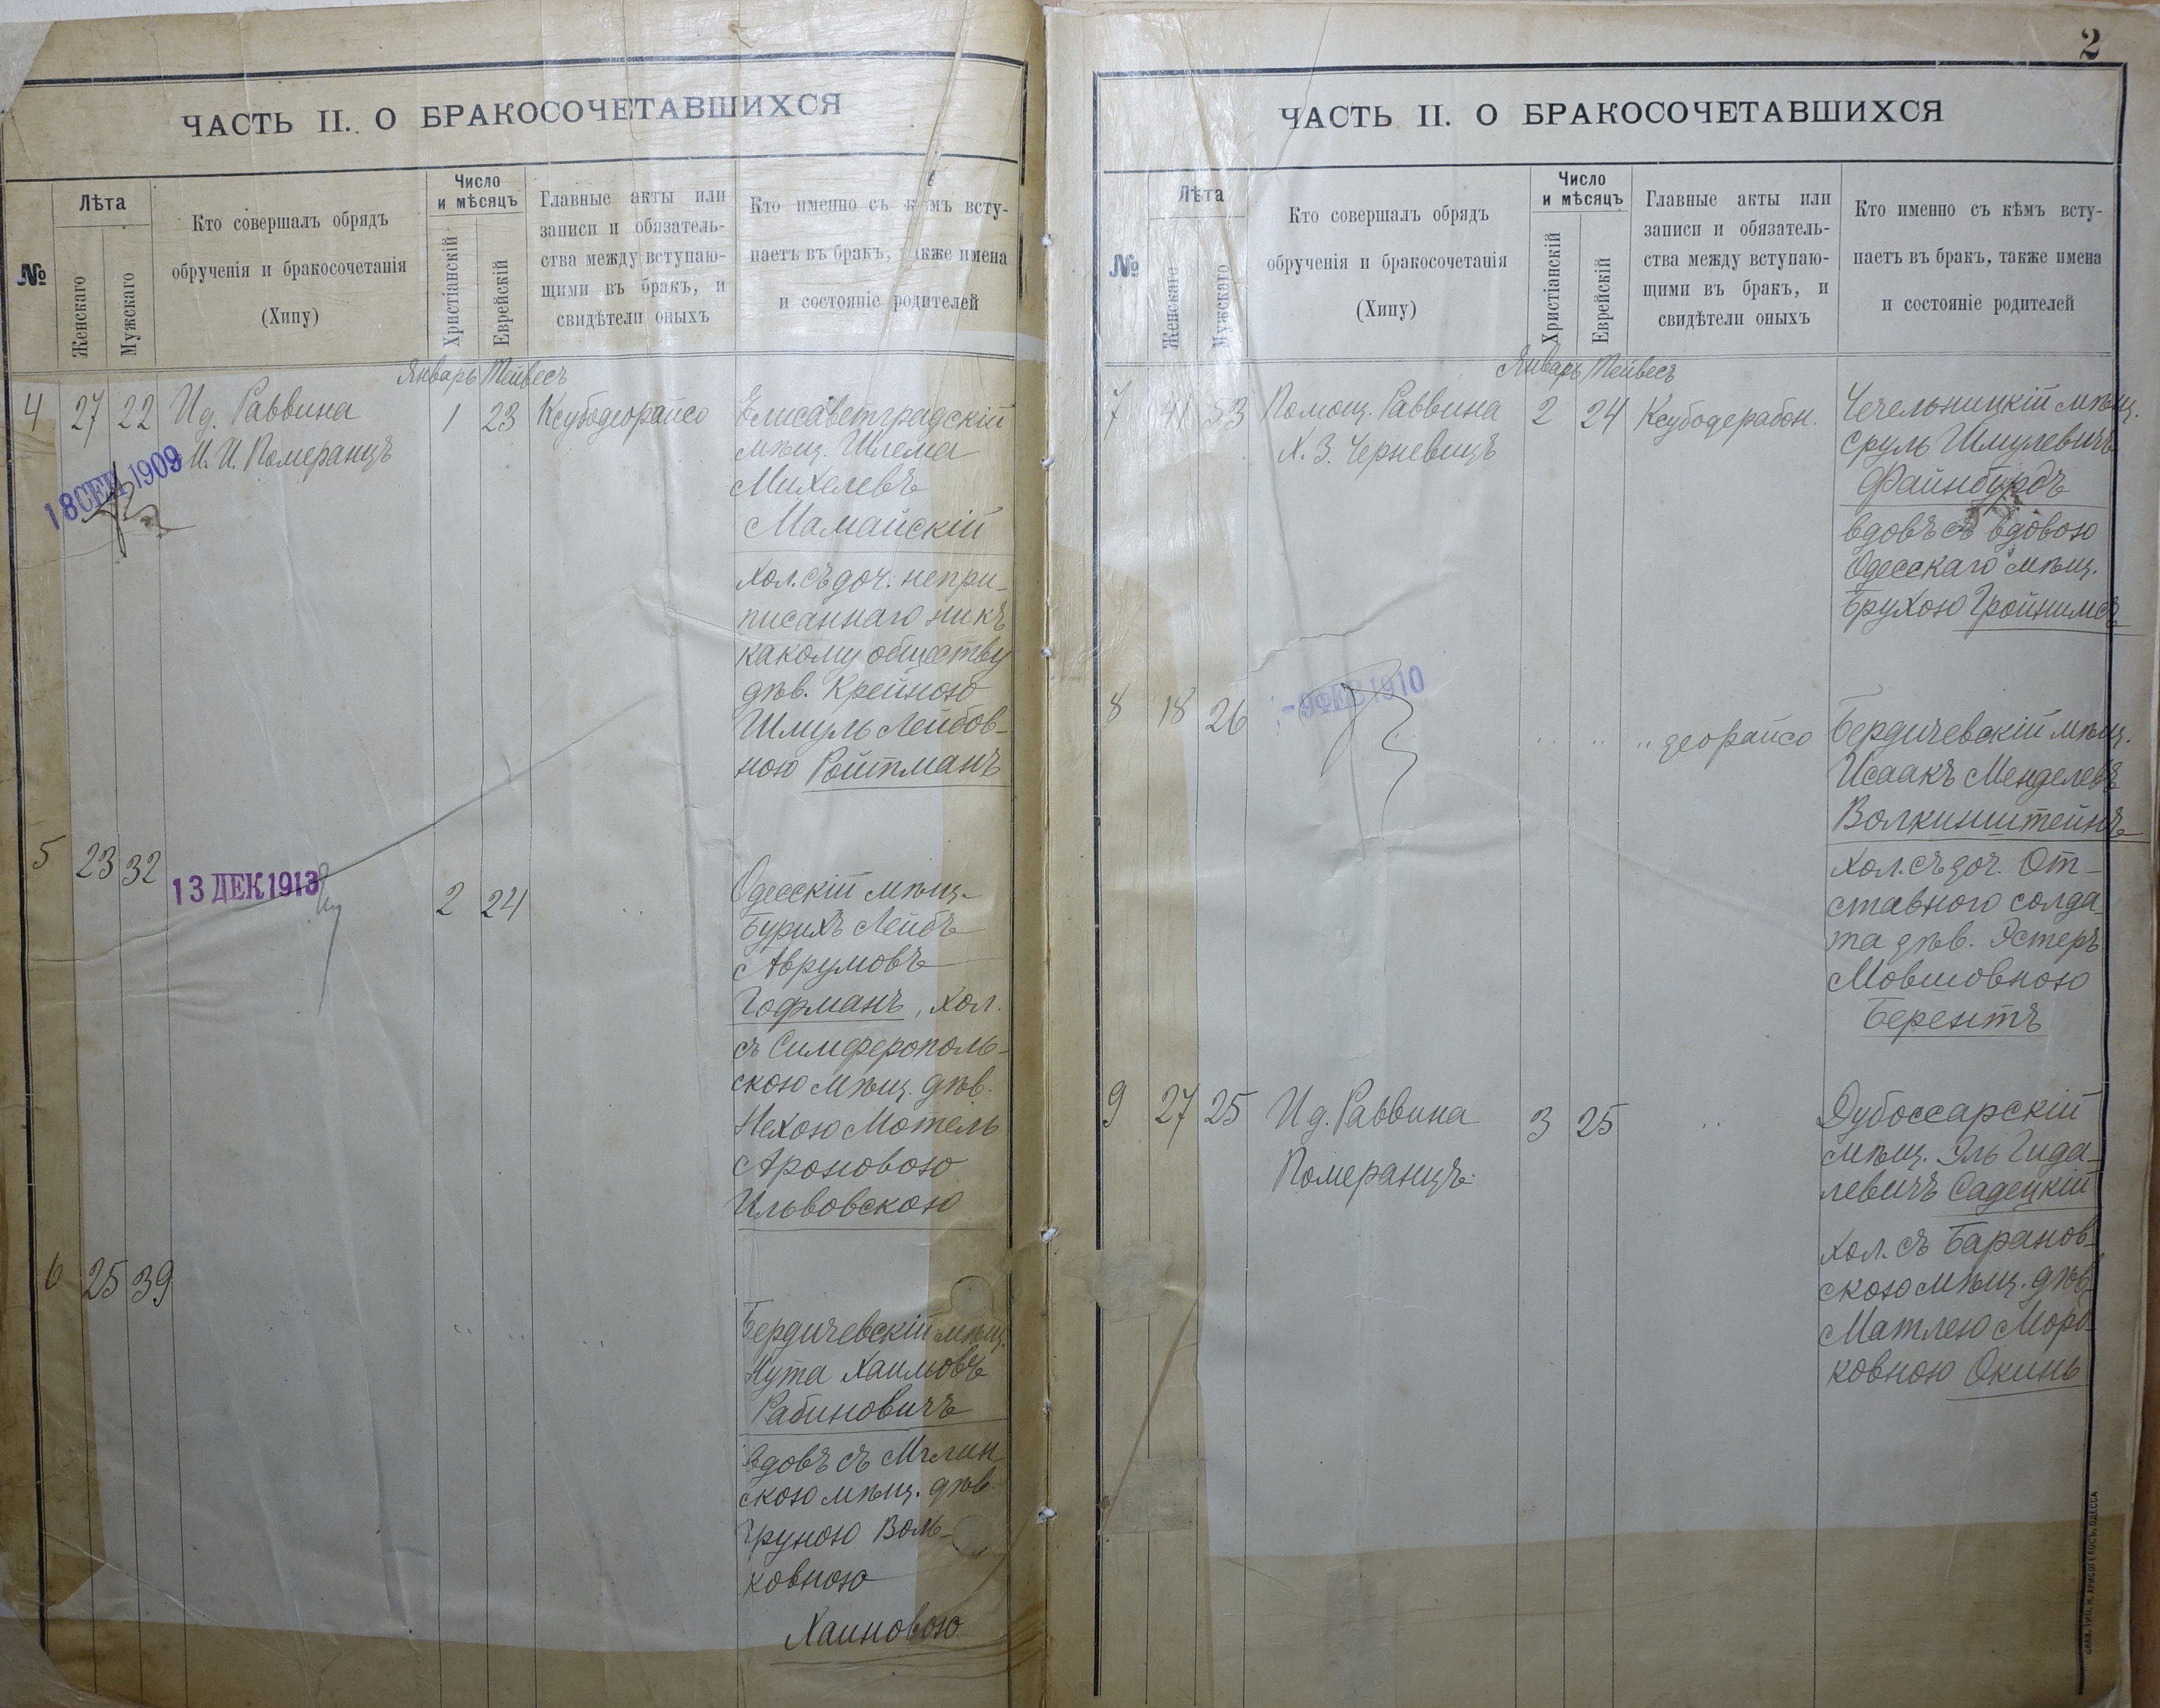 ЧАСТЬ II. О БРАКОСОЧЕТАВШИХСЯ
№
Лѣта
Женскаго
Мужскаго
Кто совершалъ обрядъ
обрученія и бракосочетанія
(Хипу)
Число
и мѣсяцъ
Христіанскій
Еврейскій
Главные акты или
записи и обязатель-
ства между вступаю-
щими въ бракъ, и
свидѣтели оныхъ
Кто именно съ к мъ всту-
паетъ въ бракъ, акже имена
и состояніе родителей
Январь Тейвесъ
4 27 22 Ид. Раввина 1 23 Ксубодеорайсо
И. И. Померанцъ
18 СЕН 1909
Елисаветградскій
мѣщ. Шлема
Михелевъ
Мамайскій
хол. съ доч. непри-
писаннаго никъ
какому обществу
дѣв. Крейною
Шмуль Лейбов-
ною Ройтманъ
5 23 32 2 24 "
13 ДЕК 1913
Одесскій мѣщ.
Бурихъ Лейбъ
Аврумовъ
Гофманъ, хол.
съ Симферополь-
скою мѣщ. дѣв.
Нехою Мотель
Ароновою
Ильвовскою
6 25 39 " " "
Бердичевскій мѣщ.
Нута Хаимовъ
Рабиновичъ
вдовъ съ Мглин
скою мѣщ. дѣв.
Груною Воль-
ковною
Хаиновою
2
ЧАСТЬ II. О БРАКОСОЧЕТАВШИХСЯ
№
Лѣта
Женскаго
Мужскаго
Кто совершалъ обрядъ
обрученія и бракосочетанія
(Хипу)
Число
и мѣсяцъ
Христіанскій
Еврейскій
Главные акты или
записи и обязатель-
ства между вступаю-
щими въ бракъ, и
свидѣтели оныхъ
Кто именно съ кѣмъ всту-
паетъ въ бракъ, также имена
и состояніе родителей
Январь Тейвесъ
7 41 53 Помощ. Раввина 2 24 Ксубодерабон.
Х. З. Черневицъ
Чечельницкій мѣщ.
Сруль Шмулевичъ
Файнбурдъ
вдовъ съ вдовою
Одесскаго мѣщ.
Брухою Гройнимъ
8 18 26 " " " деорайсо
-9 ФЕВ 1910
Бердичевскій мѣщ.
Исаакъ Менделевъ
Волкинштейнъ
хол. съ доч. От-
ставного солда-
та дѣв. Эстеръ
Мовшовною
Берентъ
9 27 25 Ид. Раввина 3 25 "
Померанцъ.
Дубоссарскій
мѣщ. Эль Гида-
левичъ Садецкій
хол. съ Баранов-
скою мѣщ. дѣв.
Матлею Морд-
ковною Окинь